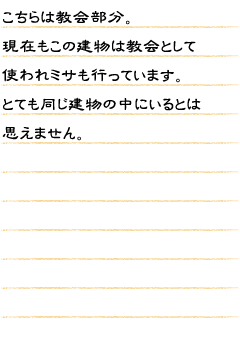 こちらは教会部分。
現在もこの建物は教会として
使われミサも行っています。
とても同じ建物の中にいるとは
思えません。